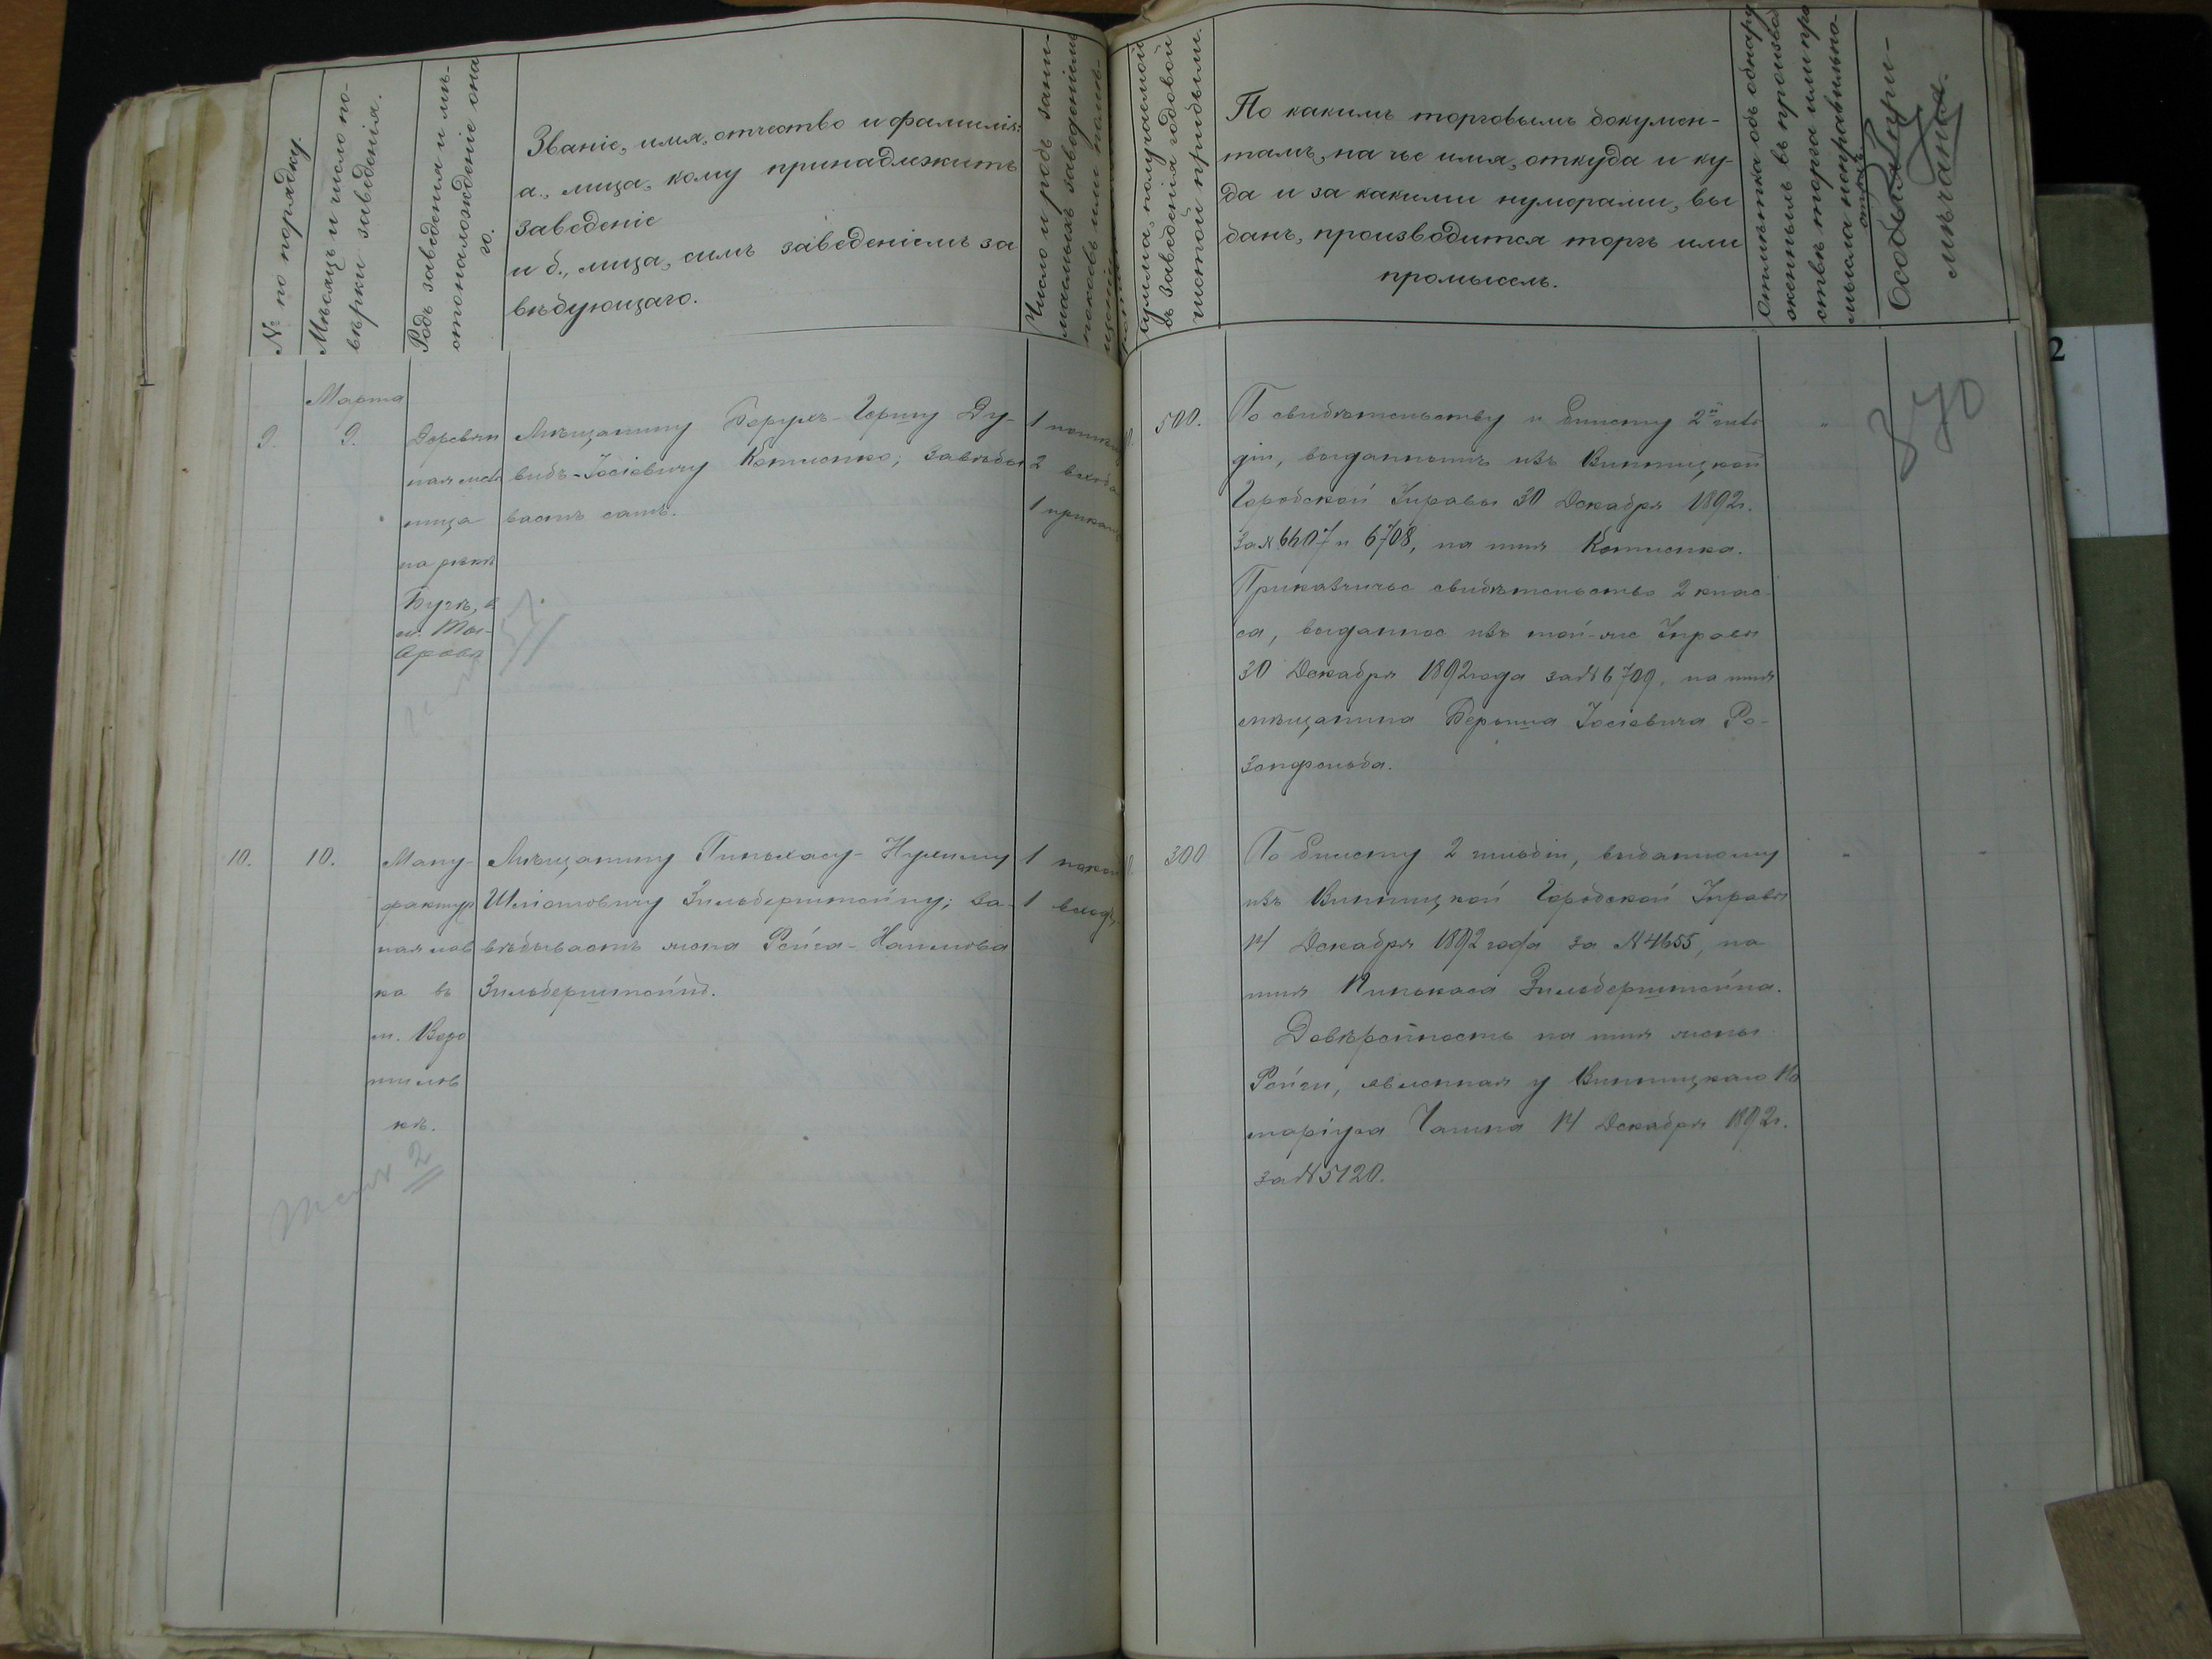 № по порядку.
Мѣсяцъ и число по-
вѣрки заведенія.
Родъ заведенія и мѣ-
стонахожденіе она
го.
Званіе, имя, отчество и фамилія:
а., лица, кому принадлежитъ
заведеніе
и б., лица, симъ заведеніемъ за
вѣдующаго.
Число и родъ зани-
маемыхъ заведеніемъ
покоевъ или помѣ-
Сумма, получаемой
въ заведеніи годовой
чистой прибыли.
По какимъ торговымъ докумен-
тамъ, на чье имя, откуда и ку-
да и за какими нумерами, вы
данъ, производится торгъ или
промыселъ.
Отмѣтка объ обнару
женныхъ въ производ
ствѣ торга или про
мысла неправильно-
стяхъ
Особыя при-
мѣчанія.
370
Марта
9.
9.
Деревян
ная
ница
на рѣкѣ
Бугѣ, в
м. Ты-
вровѣ
Мѣщанину Борухъ-Гершу Ду-
видъ-Іосіевичу Котленко; завѣды
ваетъ самъ.
1
2 входа
1 прикащ
500.
По свидѣтельству и билету 2й гиль
діи, выданнымъ изъ Винницкой
Городской Управы 30 Декабря 1892г.
за № 6607 и 6708, на имя Котленка.
Приказчичье свидѣтельство 2 клас-
са, выданное изъ той-же Управы
30 Декабря 1892 года за № 6709, на имя
мѣщанина Берыша Іосіевича Ро-
зенфельда.
"
10.
10.
Ману-
фактур
ная лав
ка въ
м. Воро
шилов
кѣ.
Мѣщанину Пинькасу-Нухиму
Шліомовичу Зильберштейну; за-
вѣдываетъ жена Рейга-Наимова
Зильберштейнъ.
1 покой
1 входъ
300
По билету 2 гильдіи, выданному
изъ Винницкой Городской Управы
14 Декабря 1892 года за № 4655, на
имя Пинькаса Зильберштейна.
Довѣренность на имя жены
Рейги, явленная у Винницкаго Но
таріуса 14 Декабря 1892г.
за № 5120.
"
"
2
2